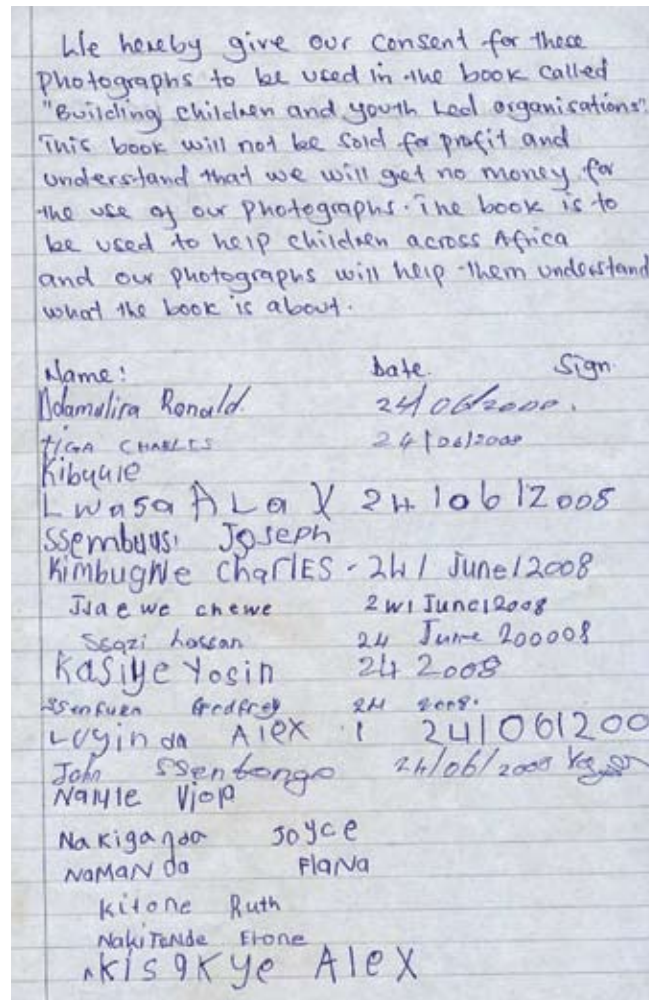 We hereby give our consent for these
photographs to be used in the book called
"Building children and youth Led organisations".
This book will not be sold for profit and
understand that we will get no money for
the use of our photographs. The book is to
be used to help children across Africa
and our photographs will help them understand
what the book is about.
Name: Date. Sign.
Ndamulira Ronald.
TIGA CHARLES
Lwasa ALaX 2410612008
Joseph
Kimbugwe CharlES - 24/ June/2008
chewe June/2008
Ssazi hassan 24 June 200008
Kasiye Yosin 24 2008
Godfrey 24 2008.
Luyinda AleX 1 241061200
John Ssentongo 24/06/2008
Nakiganda Joyce
NaMaNda FlaNa
Kitone Ruth
NakiTeNde
Alex